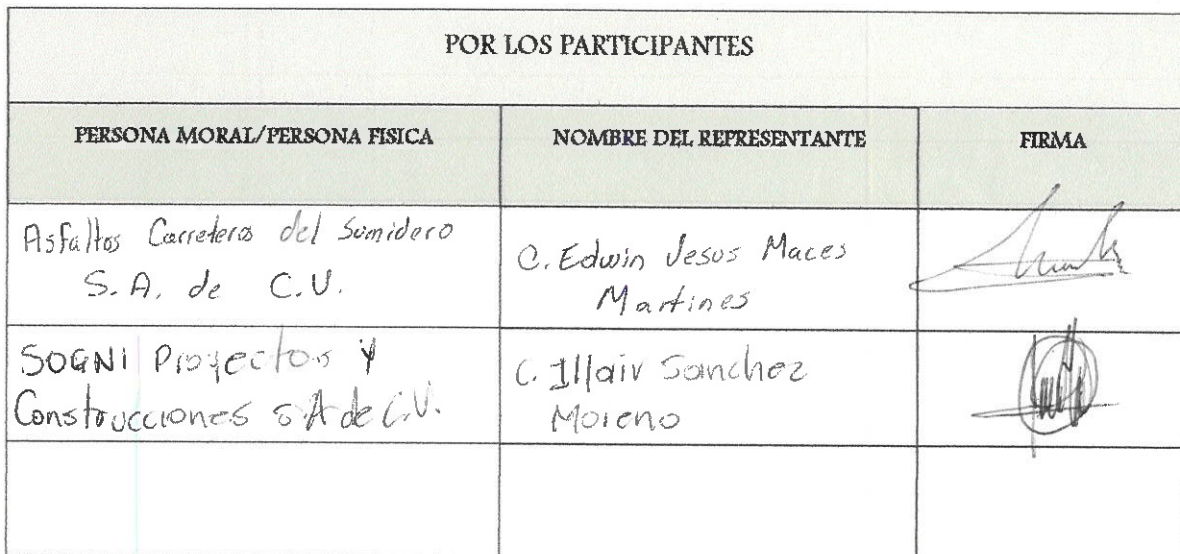 POR LOS PARTICIPANTES
PERSONA MORAL/PERSONA FISICA NOMBRE DEL REPRESENTANTE FIRMA
Asfaltos Carreteros del Sumidero
S.A. de C.V.
C. Edwin Jesus Maces
Martines
SOGNI Proyectos Y
Construcciones S A de C.V.
C. Illair Sanchez
Moreno